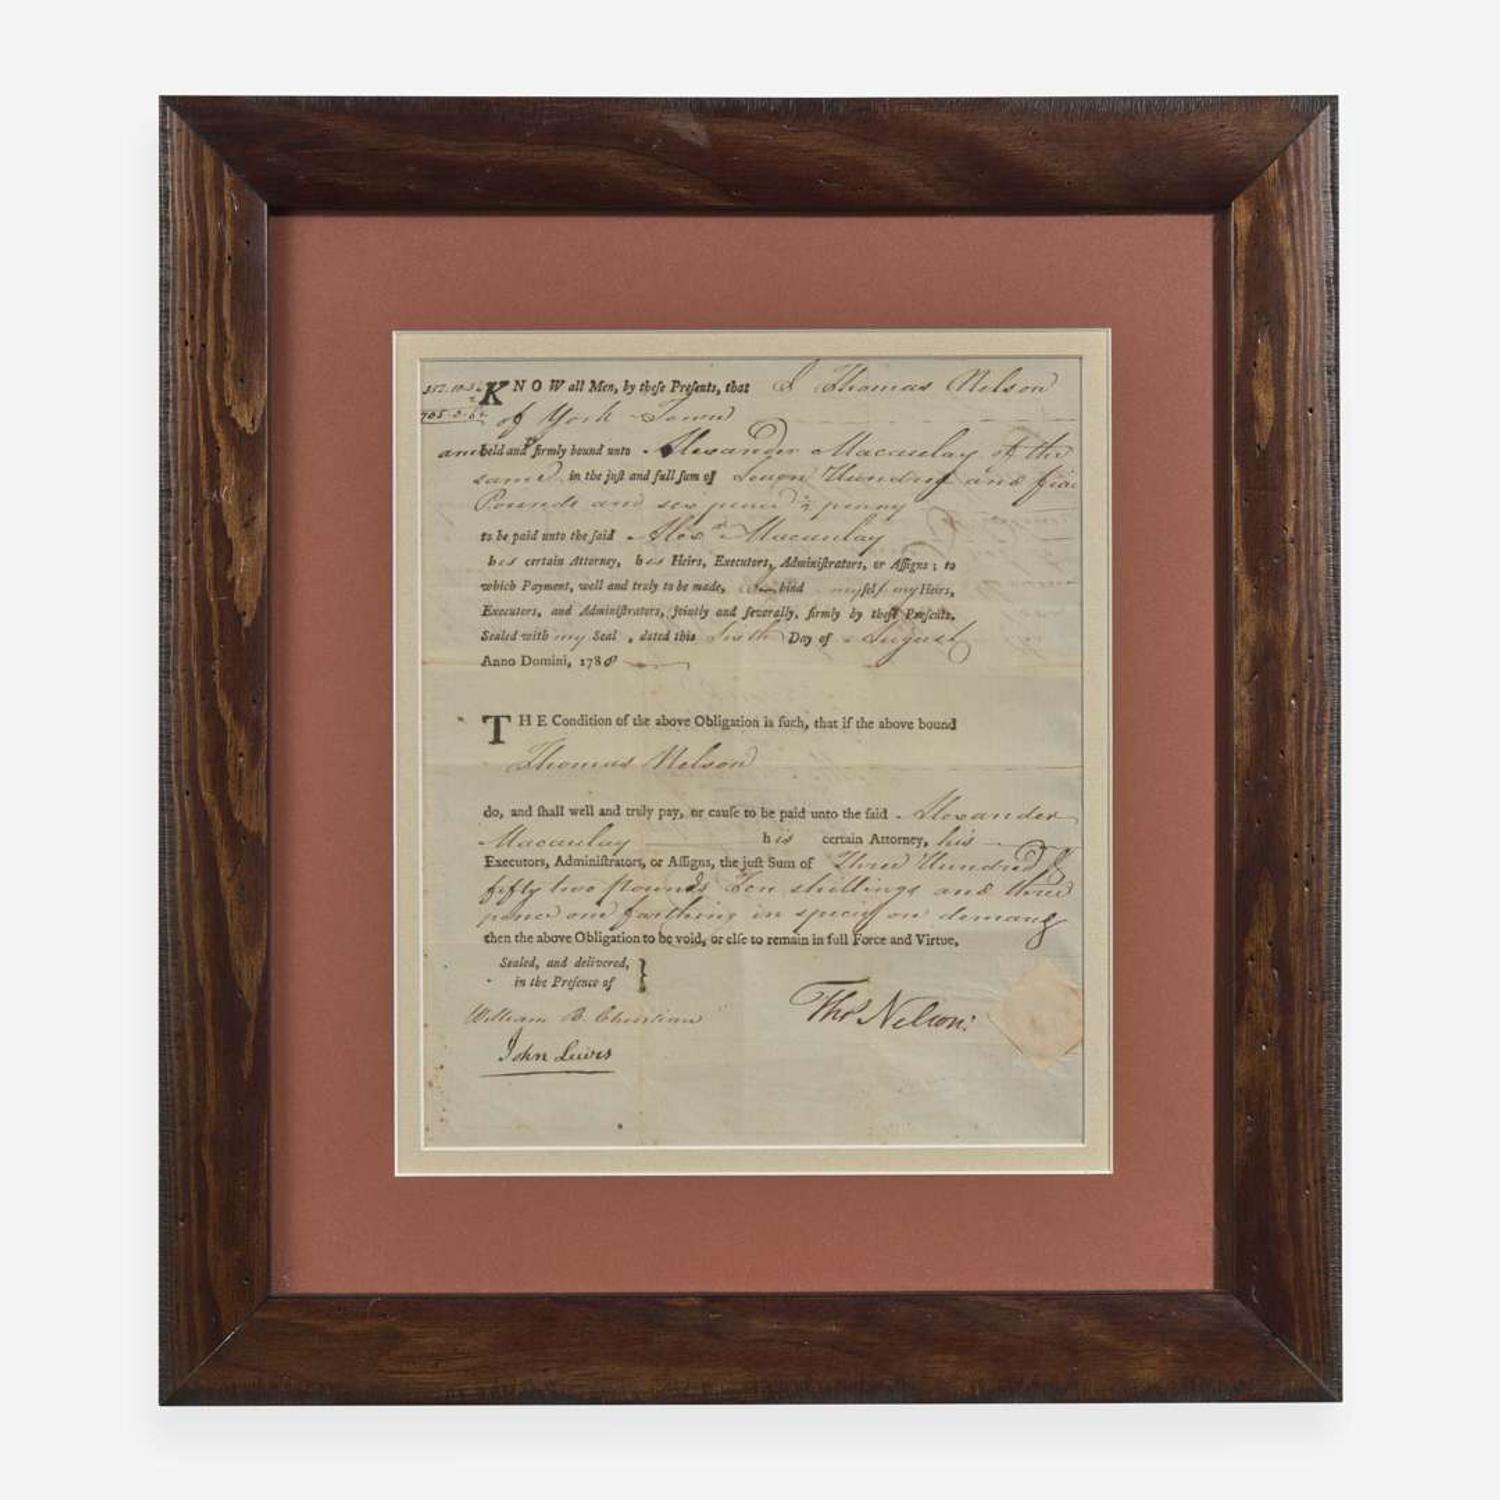 352.10.3¼
2
705.0.6½
KNOW all Men, by theſe Preſents, that I Thomas Nelson
of York Town
am held and firmly bound unto Alexander Macaulay of the
same in the juſt and full ſum of Seven Hundred and five
Pounds and six pence ½ penny
to be paid unto the ſaid Alexr Macaulay
his certain Attorney, his Heirs, Executors, Adminiſtrators, or Aſſigns; to
which Payment, well and truly to be made, I bind myſelf my Heirs,
Executors, and Adminiſtrators, jointly and ſeverally, firmly by theſe Preſents.
Sealed with my Seal, dated this Sixth Day of August
Anno Domini, 178
THE Condition of the above Obligation is ſuch, that if the above bound
Thomas Nelson
do, and ſhall well and truly pay, or cauſe to be paid unto the ſaid Alexander
Macaulay his certain Attorney, his
Executors, Adminiſtrators, or Aſſigns, the juſt Sum of Three Hundred &
fifty two pounds Ten shillings and three
pence one farthing in specie on demand
then the above Obligation to be void, or elſe to remain in full Force and Virtue.
Sealed, and delivered,
in the Preſence of }
William B. Christian
John Lewis
Thos Nelson: